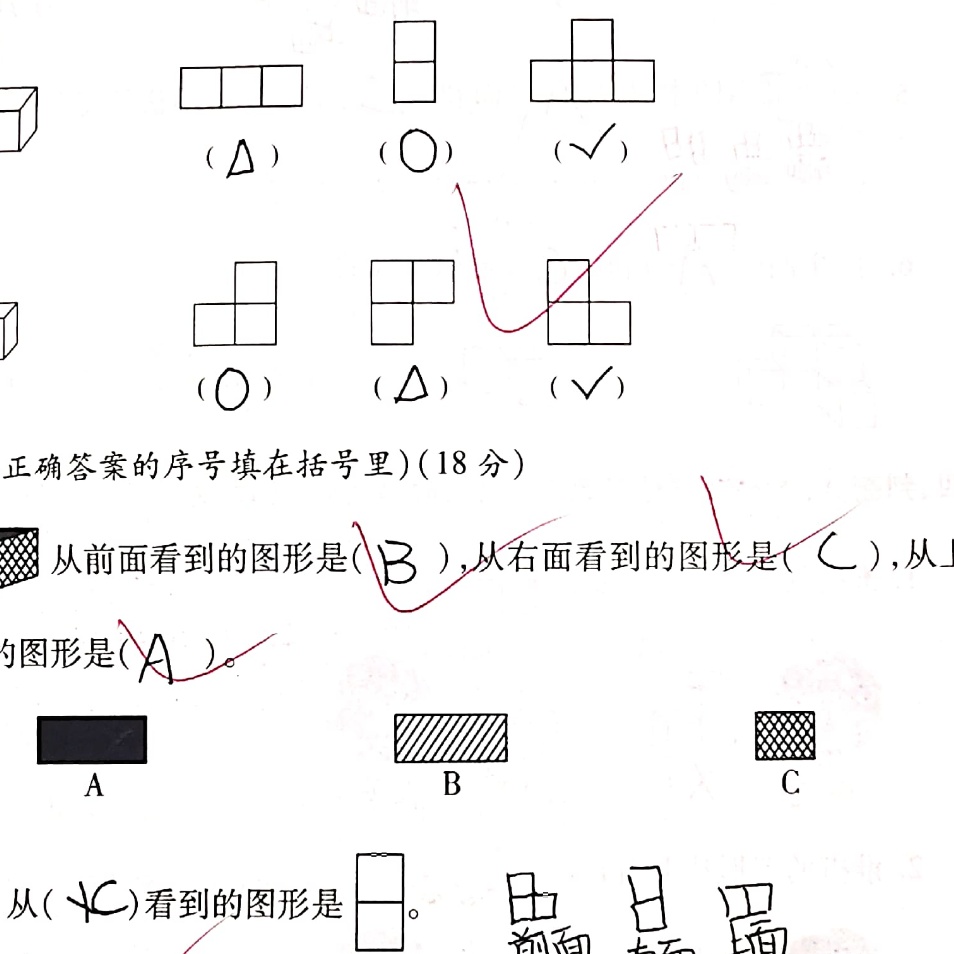 (△) (○) (✓)
(○) (△) (✓)
正确答案的序号填在括号里)(18分)
从前面看到的图形是(B),从右面看到的图形是(C),从上
的图形是(A)。
A B C
从(C)看到的图形是 。
前面 右面 上面